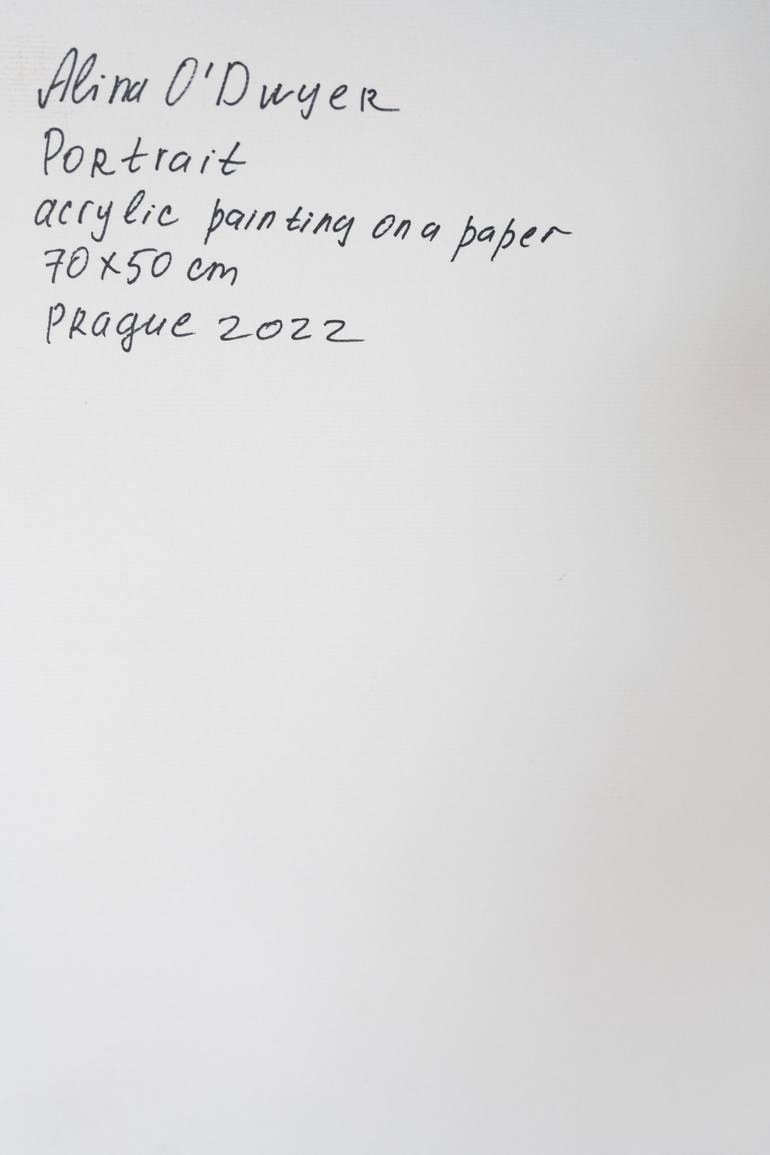 Alina O'Dwyer
Portrait
acrylic painting on a paper
70x50 cm
Prague 2022